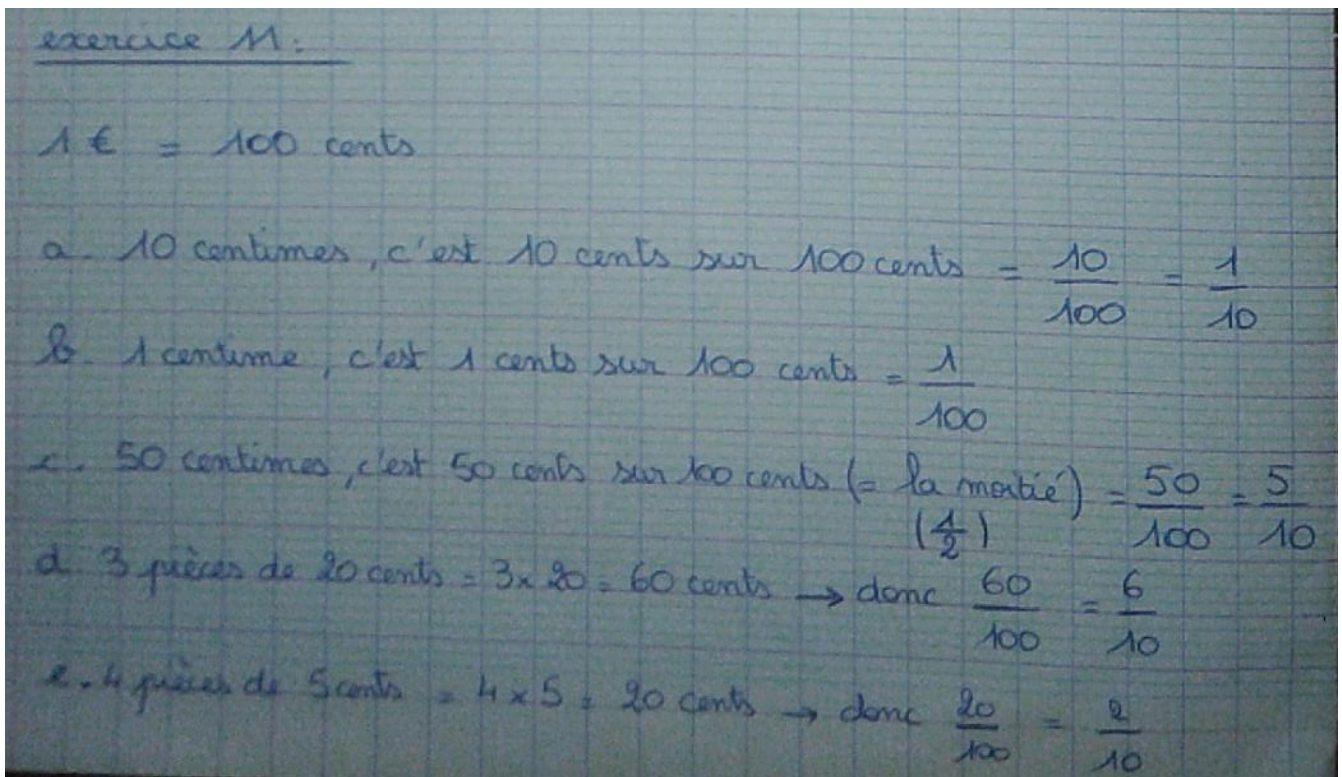 exercice 11:
1 € = 100 cents
a. 10 centimes, c'est 10 cents sur 100 cents = 10/100 = 1/10
b. 1 centime, c'est 1 cents sur 100 cents = 1/100
c. 50 centimes, c'est 50 cents sur 100 cents (= la moitié) = 50/100 = 5/10
(1/2)
d. 3 pièces de 20 cents = 3 x 20 = 60 cents → donc 60/100 = 6/10
e. 4 pièces de 5 cents = 4 x 5 = 20 cents → donc 20/100 = 2/10